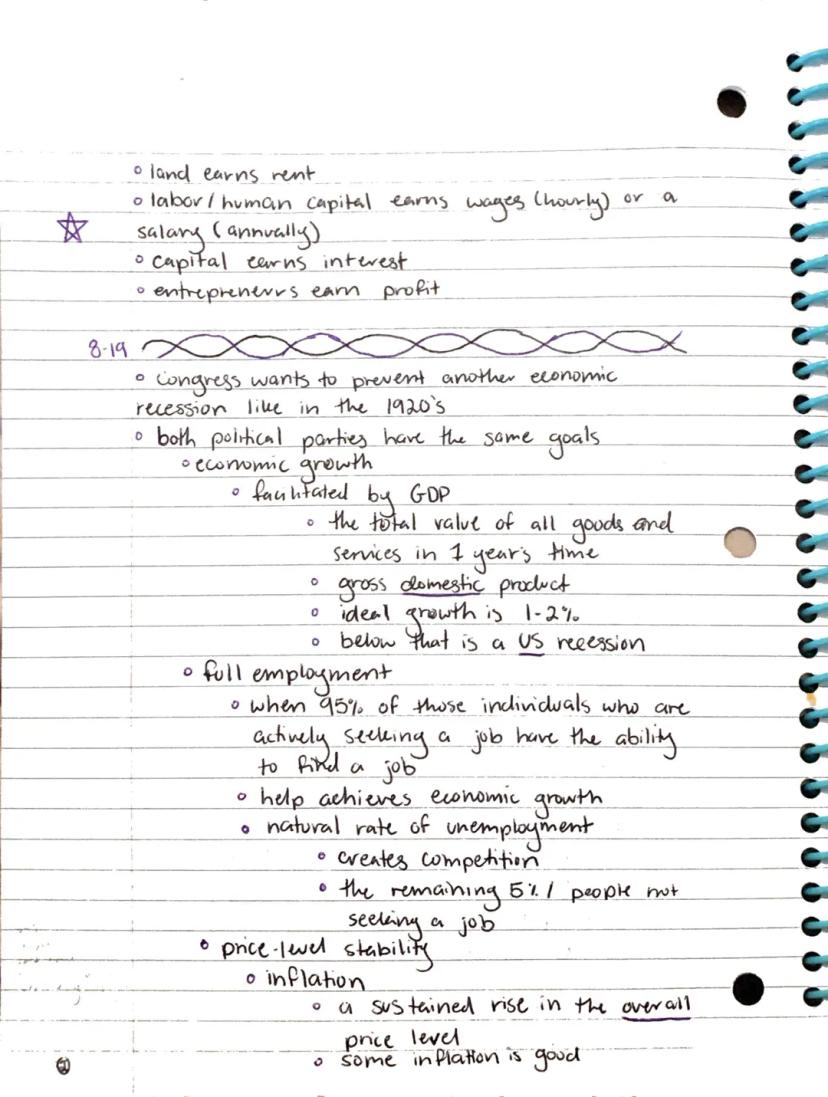 ◦ land earns rent
◦ labor / human capital earns wages (hourly) or a
salary (annually)
◦ capital earns interest
◦ entrepreneurs earn profit
8-19
◦ congress wants to prevent another economic
recession like in the 1920's
◦ both political parties have the same goals
◦ economic growth
◦ facilitated by GDP
◦ the total value of all goods and
services in 1 year's time
◦ gross domestic product
◦ ideal growth is 1-2%
◦ below that is a US recession
◦ full employment
◦ when 95% of those individuals who are
actively seeking a job have the ability
to find a job
◦ help achieves economic growth
◦ natural rate of unemployment
◦ creates competition
◦ the remaining 5% / people not
seeking a job
◦ price-level stability
◦ inflation
◦ a sustained rise in the overall
price level
◦ some inflation is good